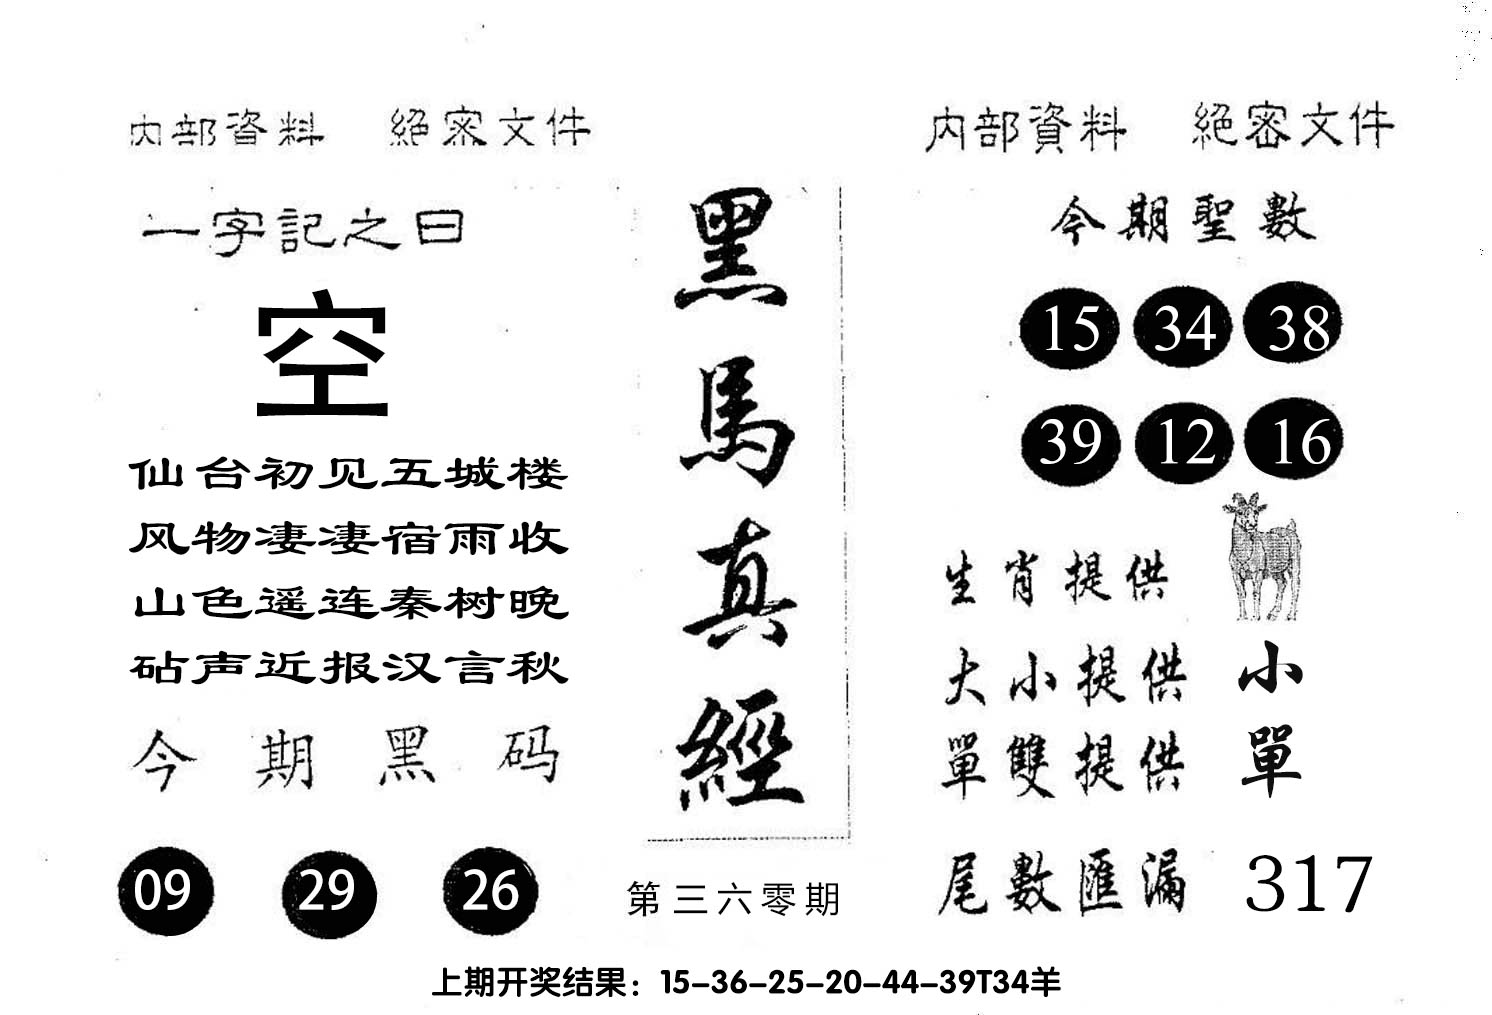 内部資料 絕密文件
一字記之曰
空
仙台初见五城楼
风物凄凄宿雨收
山色遥连秦树晚
砧声近报汉言秋
今期黑码
09 29 26
黑馬真經
第三六零期
内部資料 絕密文件
今期聖數
15 34 38
39 12 16
生肖提供
大小提供 小
單雙提供 單
尾數匯漏 317
上期开奖结果：15-36-25-20-44-39T34羊